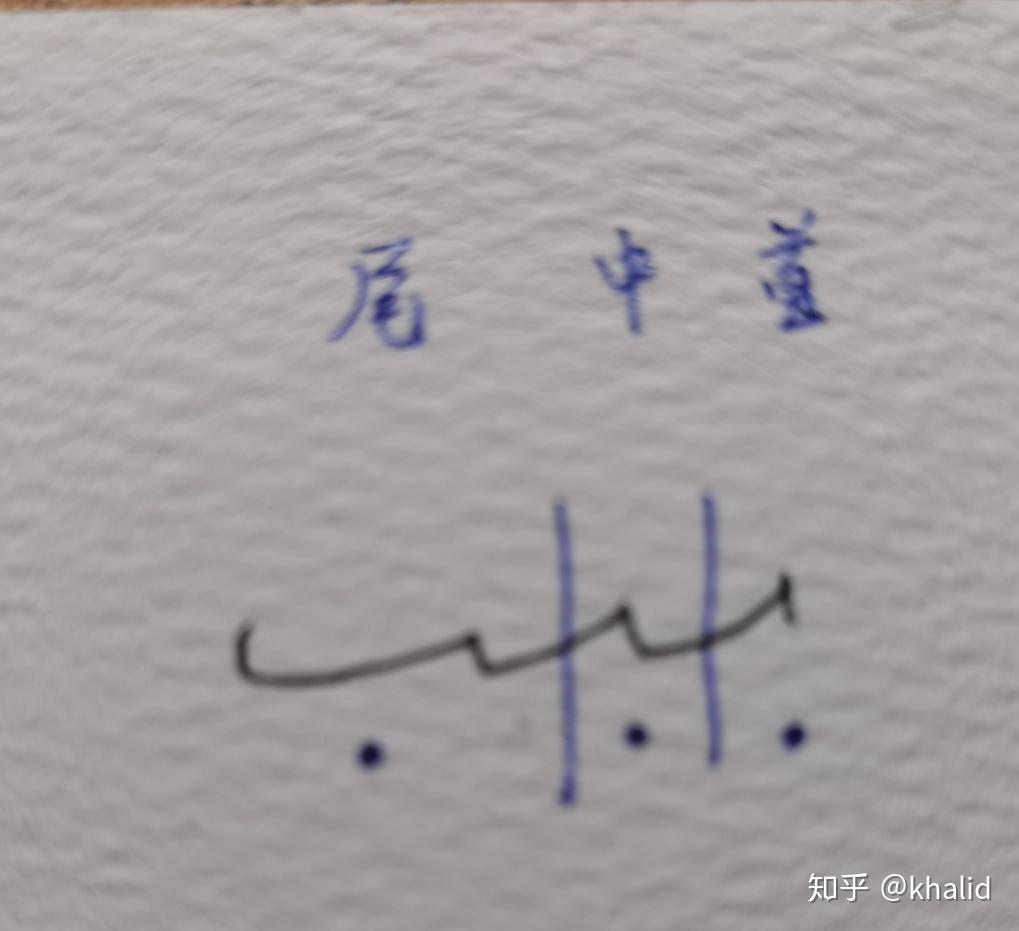 尾 中 首
知乎 @khalid